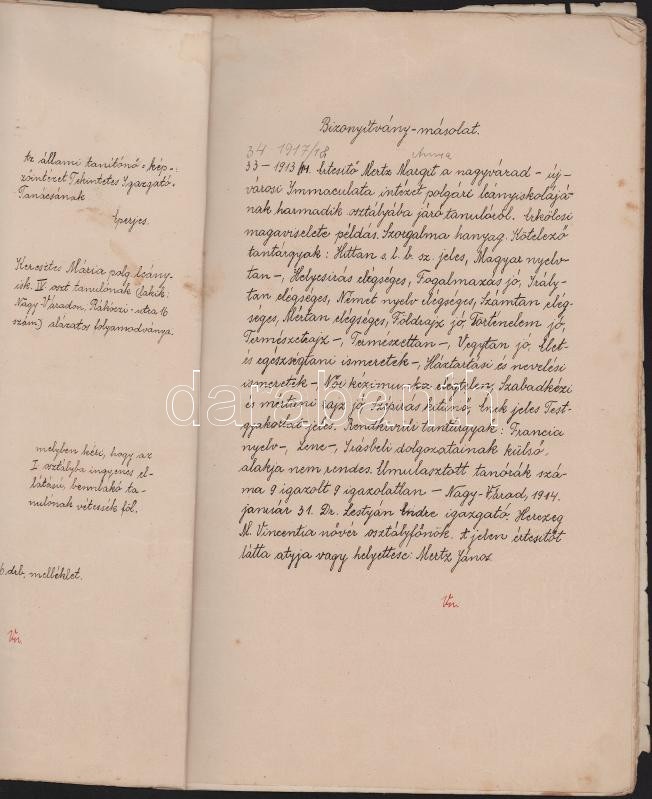 Az állami tanítónő-kép-
zőintézet Tekintetes Igazgató-
Tanácsának
Eperjes.
Keresztes Mária polg. leány-
isk. IV. oszt. tanulónak (lakik:
Nagy-Váradon, Rákóczi-utca 16
szám) alázatos folyamodványa
melyben kéri, hogy az
I osztályba ingyenes el-
látású, bennlakó ta-
nulónak vétessék föl.
6 drb. melléklet.
Vn.
Bizonyítvány-másolat.
34 1917/18 Anna
33-1913/14. Értesítő Mertz Margit a nagyvárad-új-
városi Immaculata intézet polgári leányiskolájá-
nak harmadik osztályába járó tanulóról. Erkölcsi
magaviselete példás. Szorgalma hanyag. Kötelező
tantárgyak: Hittan s. l. b. sz. jeles, Magyar nyelv-
tan -, Helyesírás elégséges, Fogalmazás jó, Irály-
tan elégséges, Német nyelv elégséges, Számtan elég-
séges, Mértan elégséges, Földrajz jó, Történelem jó,
Természetrajz -, Természettan -, Vegytan jó, Élet-
és egészségtani ismeretek -, Háztartási és nevelési
ismeretek -, Női kézimunka elégtelen, Szabadkézi
és mértani rajz jó, Szépírás kitűnő, Ének jeles Test-
gyakorlat jeles. Rendkívüli tantárgyak: Francia
nyelv -, Zene -, Írásbeli dolgozatainak külső
alakja nem rendes. Elmulasztott tanórák szá-
ma 9 igazolt 9 igazolatlan - Nagy-Várad, 1914.
január 31. Dr. Lestyán Endre igazgató Herczeg
M. Vincentia nővér osztályfőnök. A jelen értesítőt
látta atyja vagy helyettese: Mertz János
Vn.
darabanth